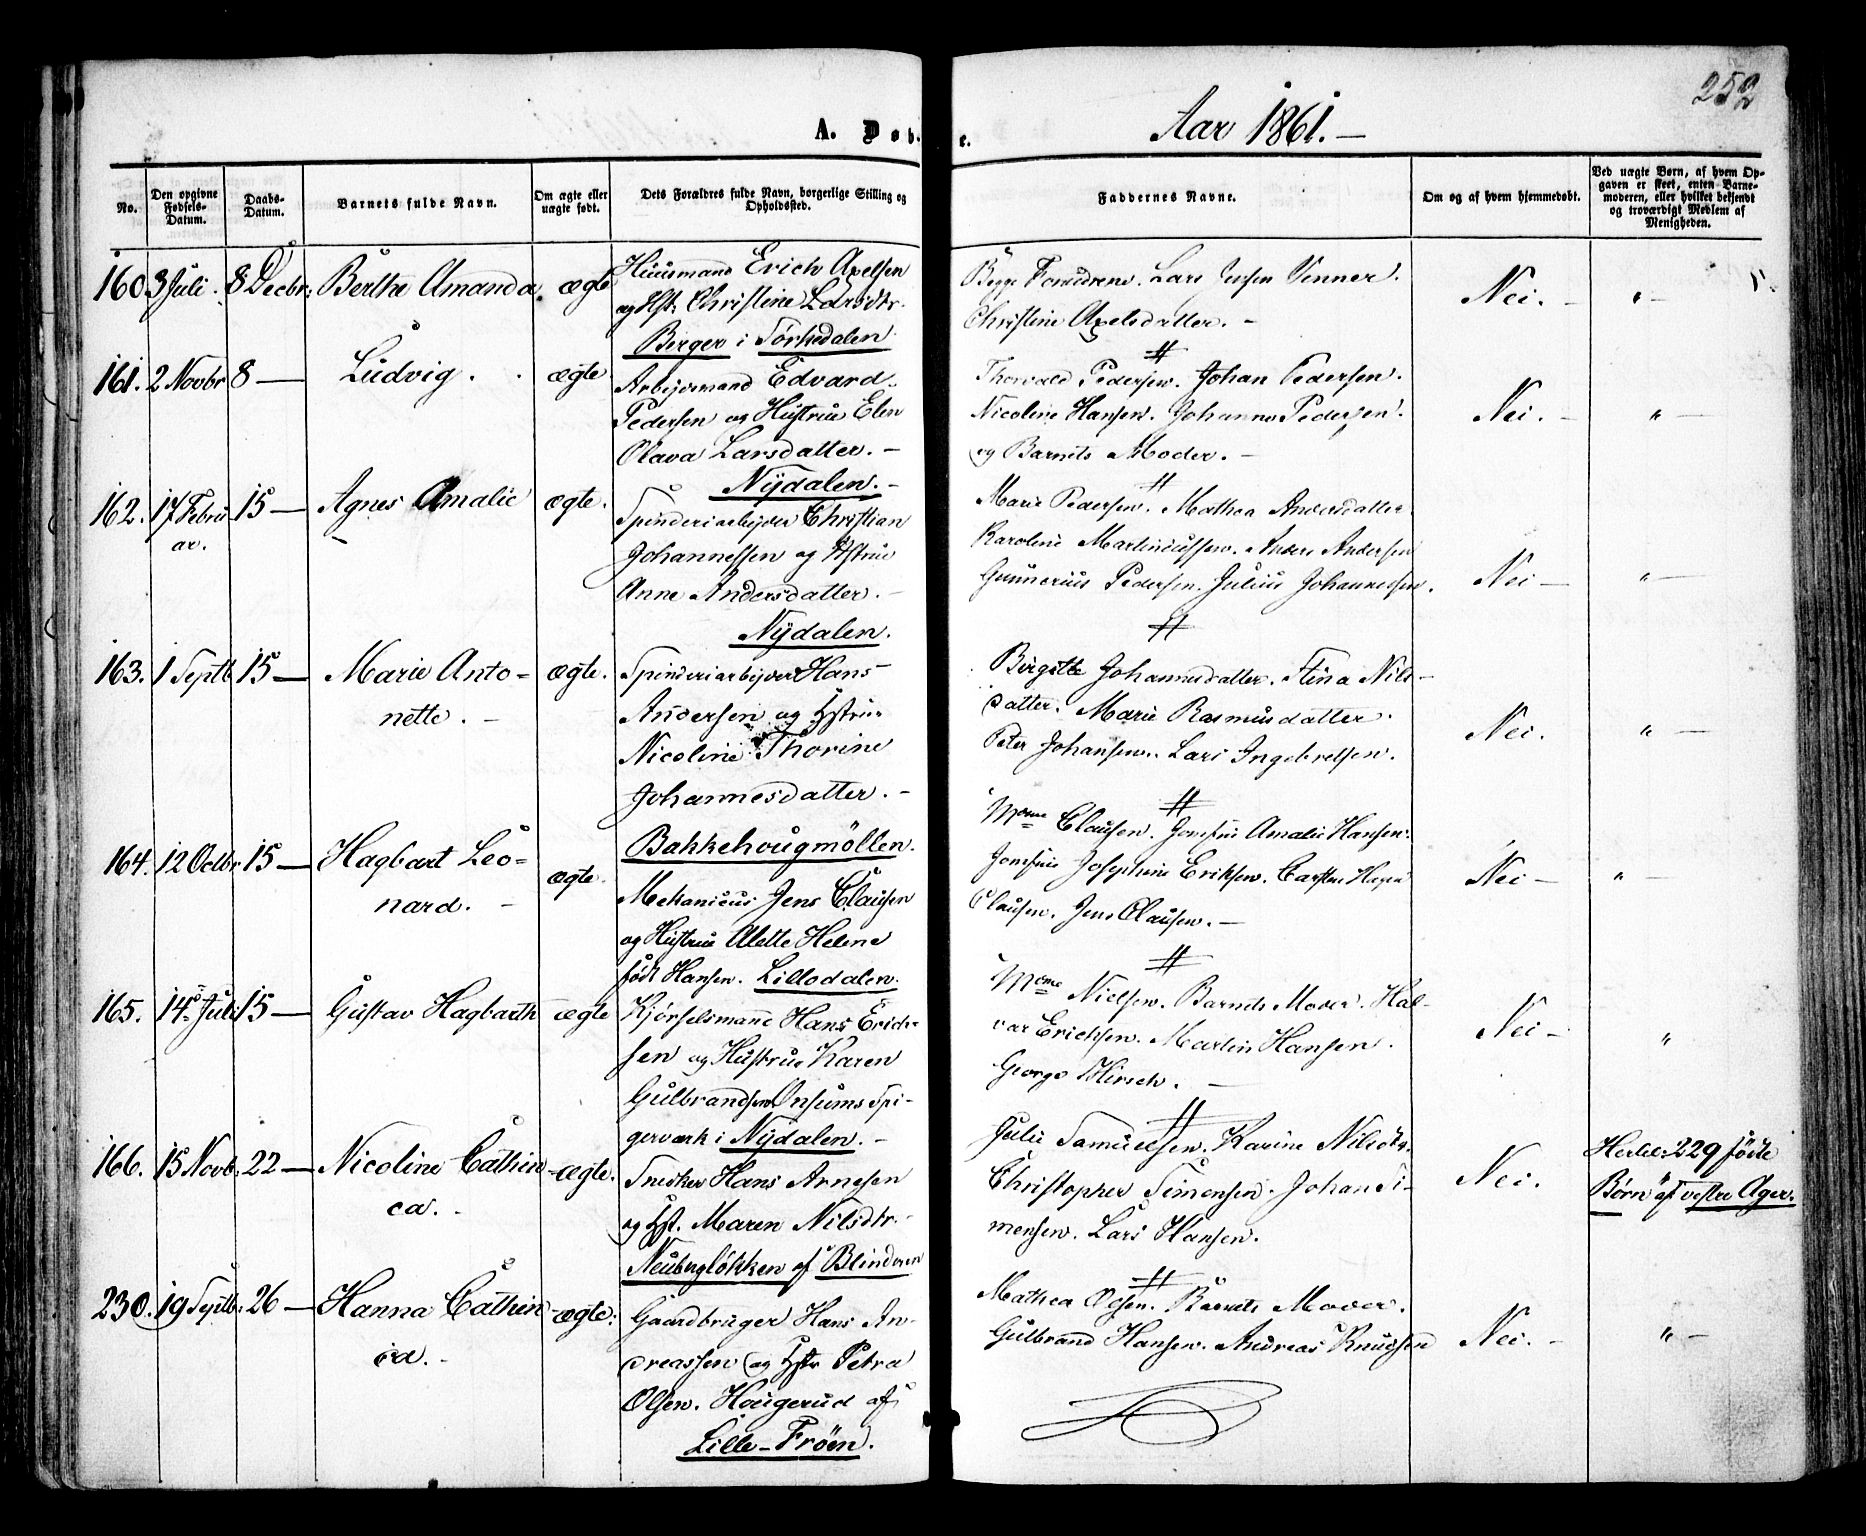 252
A. Døb-
e.
Aar 1861.—
No.
Den opgivne Fødsels-Datum.
Daabs-Datum.
Barnets fulde Navn.
Om ægte eller uægte født.
Dets Forældres fulde Navn, borgerlige Stilling og Opholdssted.
Faddernes Navne.
Om og af hvem hjemmedøbt.
Ved uægte Børn, af hvem Opgaven er skeet, enten Barnemoderen, eller hvilket bekjendt og troværdigt Medlem af Menigheden.
160. 3 Juli. 8 Decbr: Berthe Amanda. ægte
Huusmand Erich Axelsen
og Hst: Christine Larsdtr.
Birger i Sørkedalen
Begge Forældrene. Lars Jensen Venner.
Christine Axelsdatter. —
Nei. — " —
161. 2 Novbr 8 — Ludvig. ægte
Arbejdsmand Edvard
Pedersen og Hustrue Elen
Olava Larsdatter. —
Nÿdalen. —
Thorvald Pedersen. Johan Pedersen.
Nicoline Hansen. Johanne Pedersen.
og Barnets Moder. —
Nei. — " —
162. 17 Febru 15 — Agnes Amalie ægte.
ar.
Spinderiarbejder Christian
Johannessen og Hstrue
Anne Andersdatter. —
Nÿdalen.
Marie Pedersen. Mathea Andersdatter
Karoline Martiniussen. Anders Andersen
Gunnerius Pedersen. Julius Johannessen.
Nei — " —
163. 1 Septb 15 — Marie Anto- ægte.
nette. —
Spinderiarbejder Hans
Andersen og Hstrue
Nicoline Thorine
Johannesdatter. —
Bakkehougmöllen.
Birgitte Johannesdatter. Stina Nils-
datter. Marie Rasmusdatter.
Peter Johansen. Lars Ingebretsen.
Nei. " —
164. 12 Octbr 15 — Hagbart Leo- ægte.
nard. —
Mekanicus Jens Clausen
og Hustrue Alette Helene
født Hansen. Lillodalen.
Mdme Clausen. Jomfrue Amalie Hansen.
Jomfrue Josephine Eriksen. Carsten Hagen
Clausen. Jens Clausen. —
Nei — " —
165. 14 Juli 15 — Gustav Hagbarth ægte
Kjørselsmand Hans Erich-
sen og Hustrue Karen
Gulbrandsen Onsums Spi-
gerværk i Nÿdalen. —
Mdme Nielsen. Barnets Moder. Hal-
var Erichsen. Martin Hansen.
George Hirsch. —
Nei — "
166. 15 Novb: 22 — Nicoline Cathin- ægte.
ca. -
Snedker Hans Arnesen
og Hst. Maren Nilsdtr.
Neubergløkken af Blinderen
Julie Samuelsen. Karine Nilsdtr.
Christopher Simensen. Johan Si-
mensen. Lars Hansen.
Nei.
229 fødte
Børn af vestre Ager.
230. 19 Septbr: 26 — Hanna Cathin- ægte:
ca. -
Gaardbruger Hans An-
dreassen og Hstr Petra
Olsen. Hougerud af
Lille-Frøen.
Mathea Olsen. Barnets Moder.
Gulbrand Hansen. Andreas Knudsen
Nei. — " —